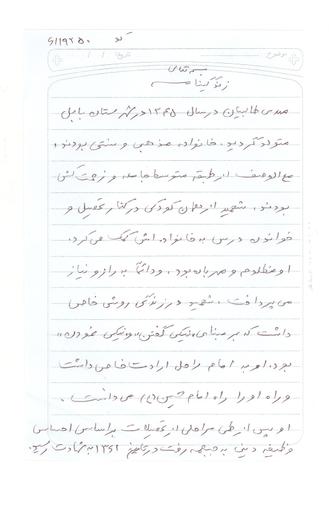 کد ۶/۱۹۲۵۰
بسمه تعالی
زندگینامه
مهدی طالبیان در سال ۱۳۴۵ در شهرستان بابل
متولد گردید. خانواده مذهبی و سنتی بودند،
مع الوصف از طبقه متوسط جامعه و زحمت کش
بودند. شهید از همان کودکی در کنار تحصیل و
خواندن درس به خانواده اش کمک می کرد.
او مظلوم و مهربان بود. و دائماً به راز و نیاز
می پرداخت. شهید در زندگی روشی خاص
داشت که بر مبنای «نیکی گفتن» و «نیکی نمودن»
بود. او به امام راحل ارادت خاص داشت
و راه او را راه امام حسین (ع) می دانست.
او پس از طی مراحلی از تحصیلات براساس احساس
وظیفه دینی به جبهه رفت در تاریخ ۱۳۶۱ به شهادت رسید.